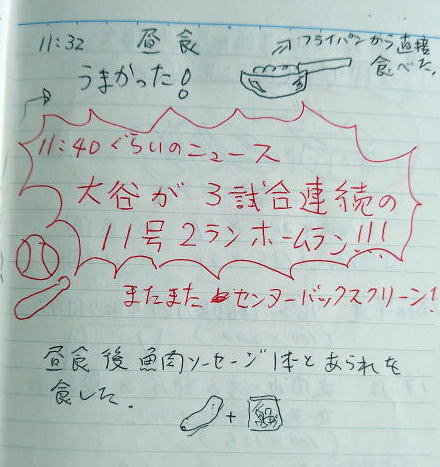 11:32 昼食
フライパンから直接
食べた。
うまかった!
11:40ぐらいのニュース
大谷が3試合連続の
11号2ランホームラン!!!
またまたセンターバックスクリーン!
昼食後魚肉ソーセージ1本とあられを
食した。
+